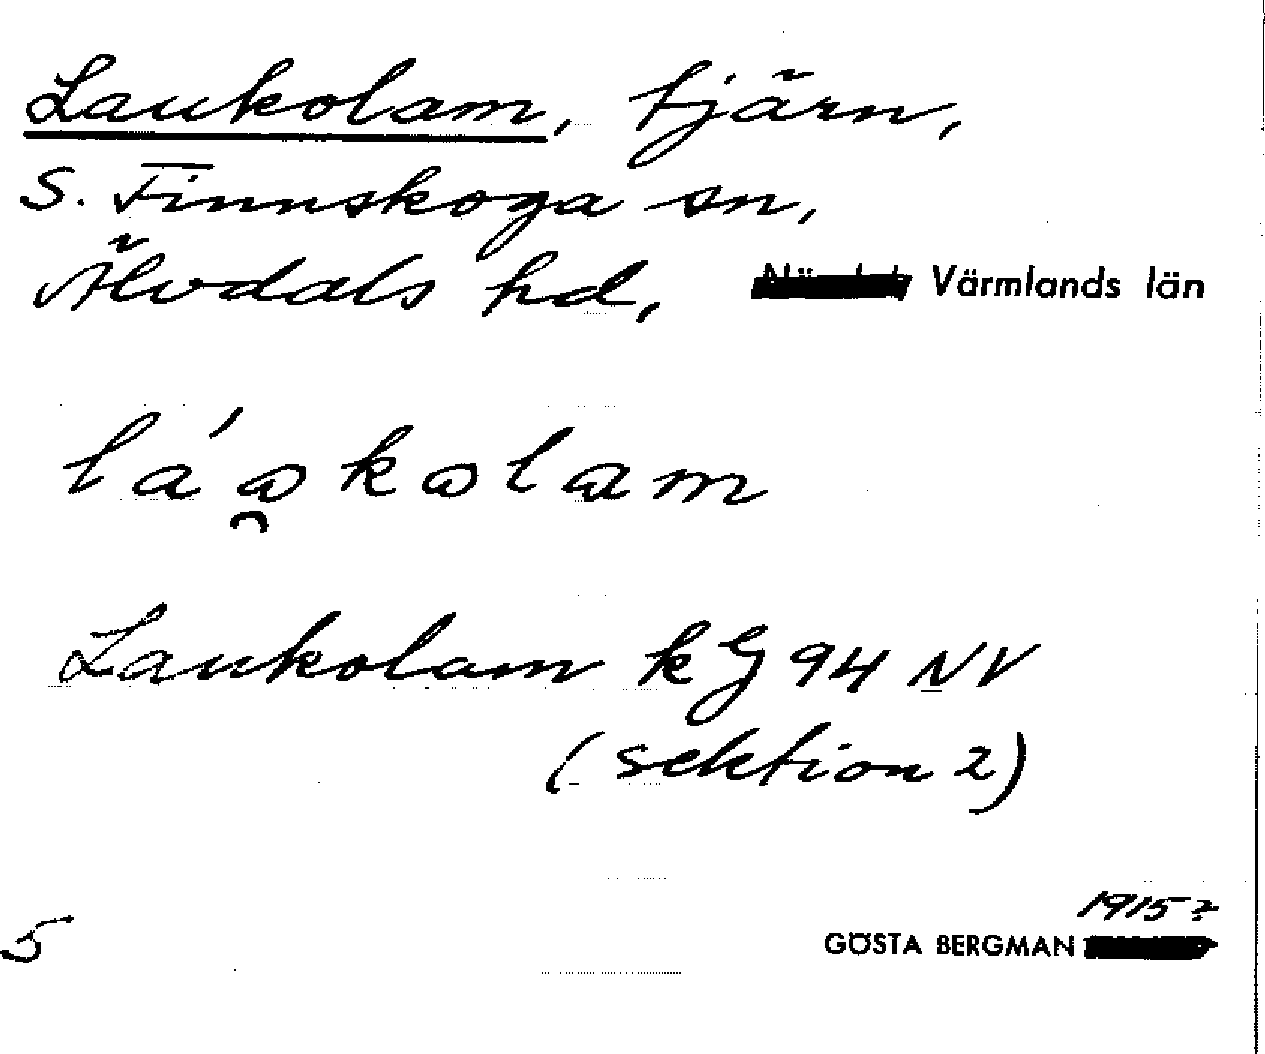 Laukolam, tjärn,
S. Finnskoga sn,
Älvdals hd, Värmlands län
Laukolam kG 94 NV
(sektion 2)
1915?
5 GÖSTA BERGMAN